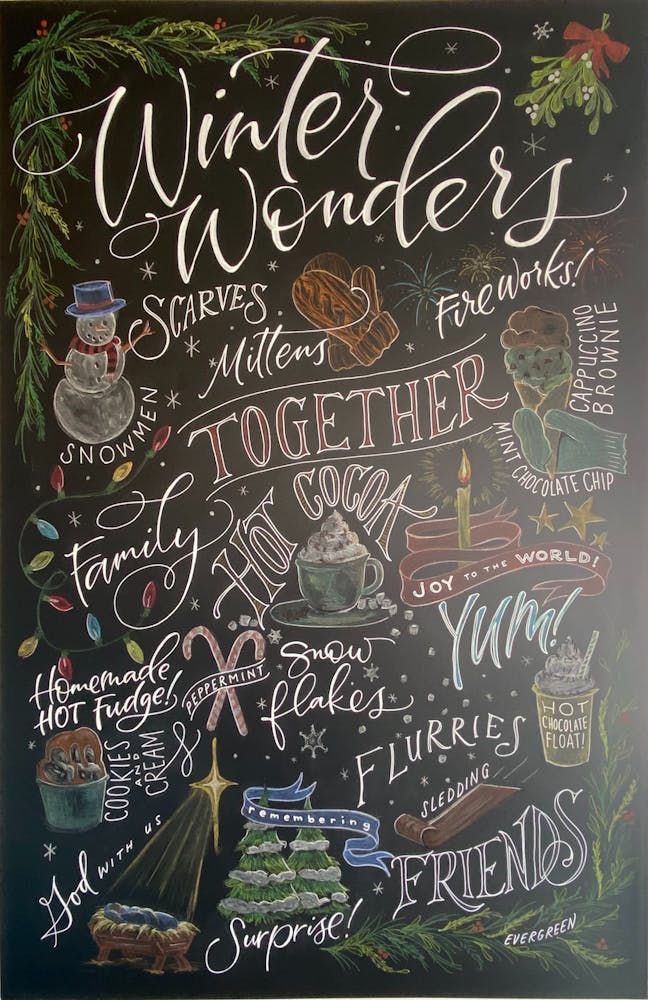 Winter
Wonders
SCARVES
Mittens
FIREWORKS!
SNOWMEN
TOGETHER
CAPPUCCINO
BROWNIE
MINT CHOCOLATE CHIP
Family
HOT COCOA
JOY TO THE WORLD!
YUM!
Homemade
HOT Fudge!
PEPPERMINT
Snow
flakes
HOT
CHOCOLATE
FLOAT!
COOKIES
AND
CREAM
FLURRIES
SLEDDING
God WITH US
remembering
FRIENDS
Surprise!
EVERGREEN